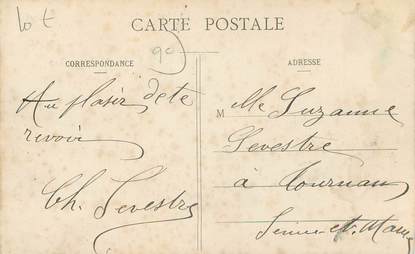 lot
CARTE POSTALE
90
CORRESPONDANCE
ADRESSE
Au plaisir de te
revoir
Ch. Sevestre
M elle Suzanne
Sevestre
à Tournan
Seine-et-Marne